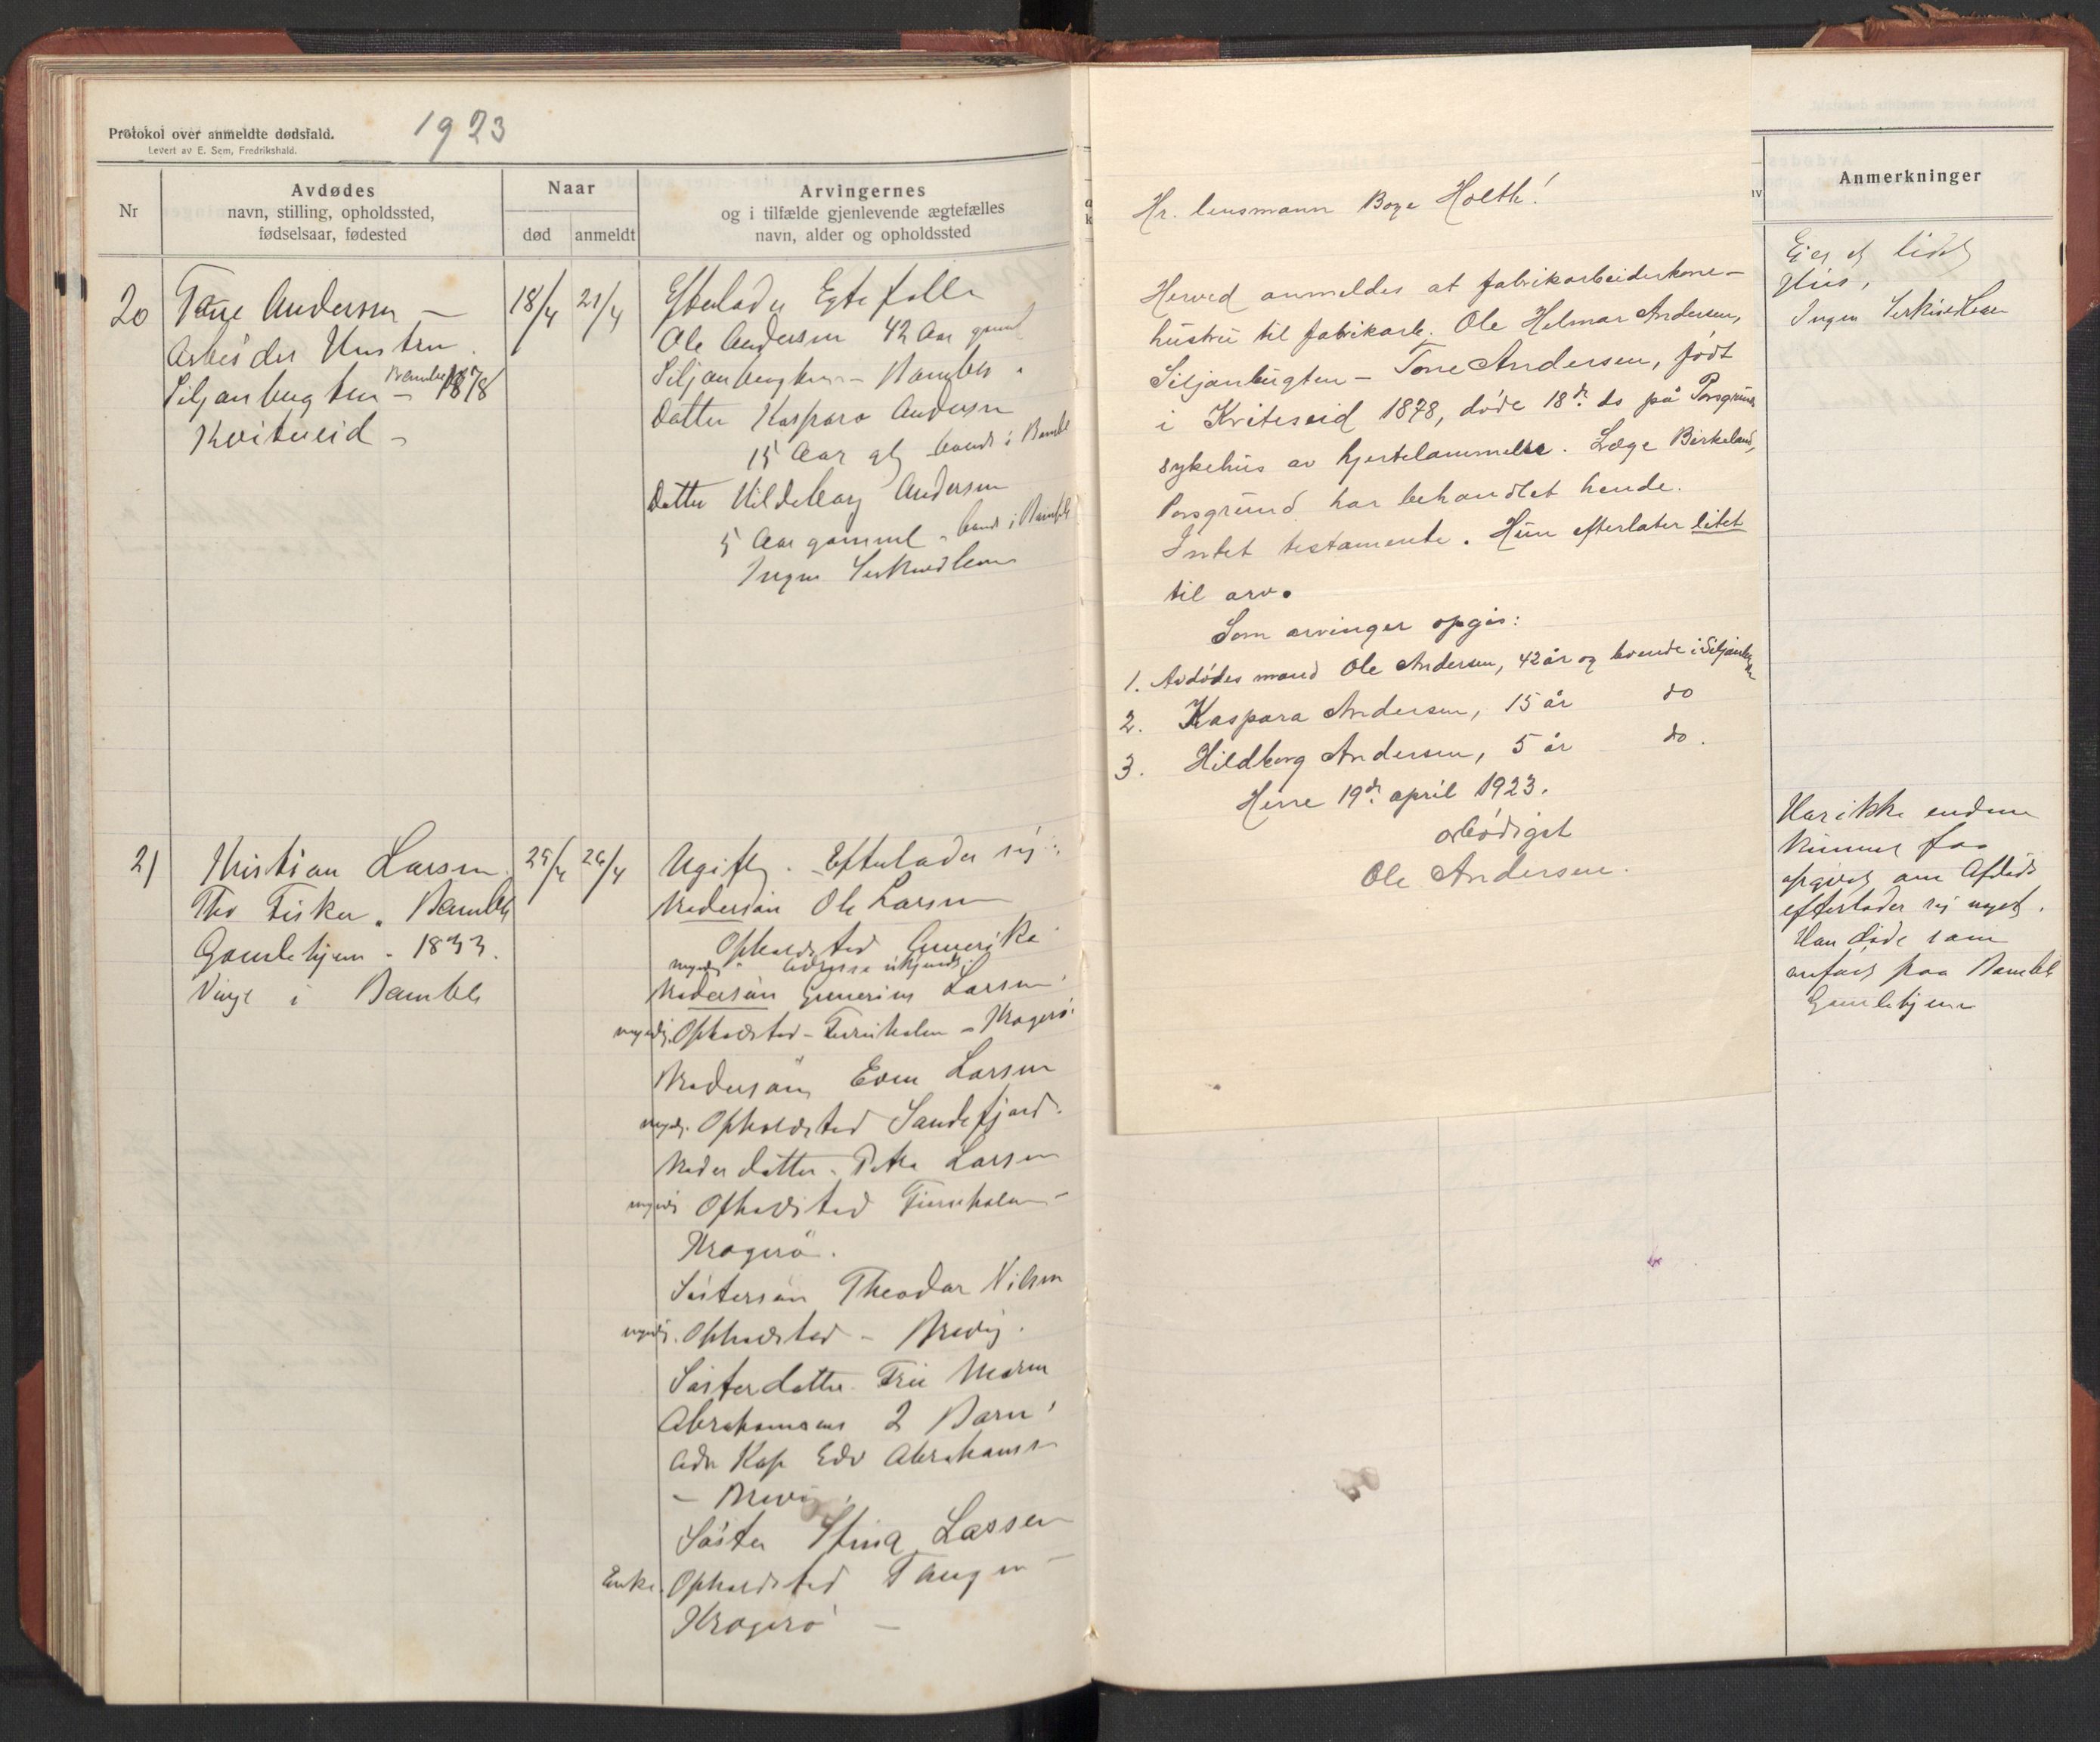 Protokol over anmeldte dødsfald.
Levert av E. Sem, Fredrikshald.
1923
Nr
Avdødes
navn, stilling, opholdssted,
fødselsaar, fødested
Naar
død
anmeldt
Arvingernes
og i tilfælde gjenlevende ægtefælles
navn, alder og opholdssted
20
Tone Andersen —
Arbeider Hustru
Siljanbugten – Bamble 1878
Kviteseid –
18/4
21/4
Efterlader Egtefelle
Ole Andersen 42 Aar gml
Siljanbugten – Bamble.
Datter Kaspara Andersen
15 Aar gl boende i Bamble
Datter Hildeborg Andersen
5 Aar gammel – boende i Bamble
Ingen
21
Kristian Larsen
Fisker. Bamble
Gamlehjem – 1833.
i Bamble
25/4
26/4
Ugift. Efterlader sig:
Brodersön Ole Larsen
Opholdsted Amerika
myndig adresse ukjendt.
Brodersön Gunerius Larsen
myndig. Opholdsted – – Kragerö.
Brodersön Even Larsen
myndg. Opholdsted Sandefjord.
Broderdatter. Petra Larsen
myndig Opholdsted –
Kragerö.
Söstersön Theodor Nilsen
myndig. Opholdsted – Brevig.
Sösterdatter. Fru Maren
Abrahamsens 2 Barn
Adr Kap Edv Abrahamsen
– Brevig.
Söster Stina Larsen
Enke. Opholdsted Tangen –
Kragerö –
Hr. lensmann Boye Holth!
Herved anmeldes at fabrikarbeiderkone –
hustru til fabrikarb. Ole Helmar Andersen,
Siljanbugten – Tone Andersen, født
i Kviteseid 1878, døde 18de ds på Porsgrunds
sykehus av hjertelammelse. Læge Birkeland,
Porsgrund har behandlet hende.
Intet testamente. Hun efterlater litet
til arv.
Som arvinger opgis:
1. Avdødes mand Ole Andersen, 42 år og boende i Siljanbugten
2. Kaspara Andersen, 15 år do
3. Hildborg Andersen, 5 år do.
Herre 19de april 1923.
ærbødigst
Ole Andersen.
Anmerkninger
Eier et lidet
Hus,
Ingen
Har ikke endnu
kunnet faa
opgivet om Afdøde
efterlader sig noget.
Han døde som
paa Bamble
Gamlehjem